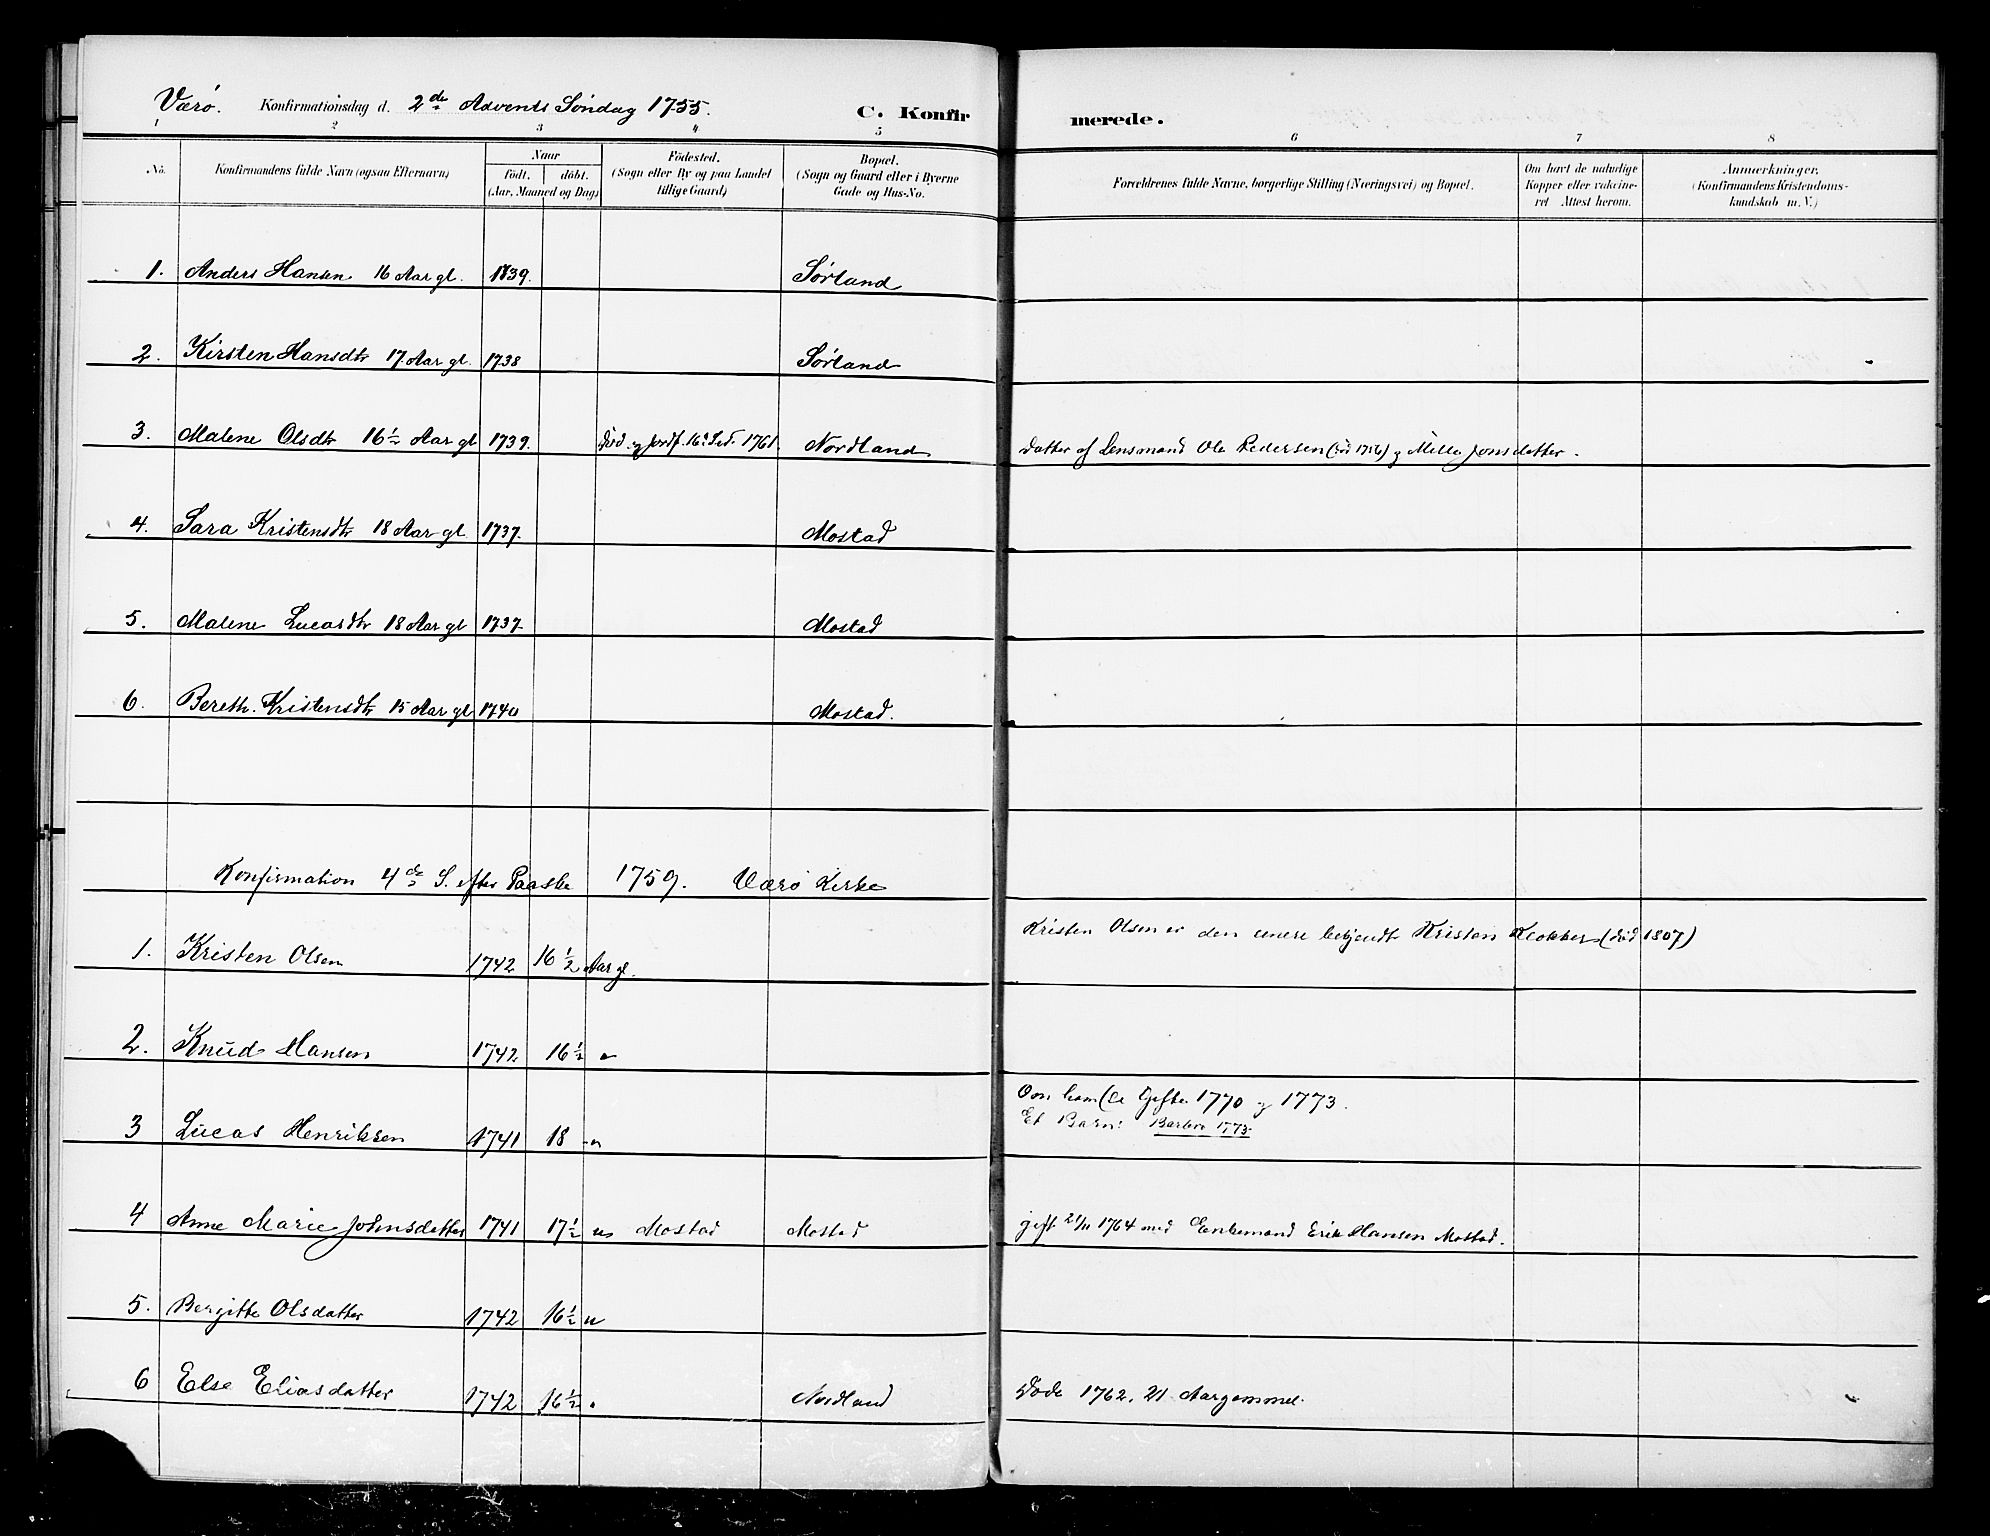 Værø. Konfirmationsdag d. 2de Advents Søndag 1755. C. Konfirmerede.
1 2 3 4 5 6 7 8
No. Konfirmandens fulde Navn (ogsaa Efternavn) Naar født. døbt. (Aar, Maaned og Dag) Födested. (Sogn eller By og paa Landet tillige Gaard) Bopæl. (Sogn og Gaard eller i Byerne Gade og Hus-No. Forældrenes fulde Navne, borgerlige Stilling (Næringsvei) og Bopæl. Om havt de naturlige Kopper eller vaccineret Attest herom. Anmærkninger. (Konfirmandens Kristendomskundskab m. V.)
1. Anders Hansen 16 Aar gl. 1739. Sørland
2. Kirsten Hansdtr 17 Aar gl. 1738 Sørland
3. Malene Olsdtr 16½ Aar gl 1739. Død og Jordf. 1761. Nordland Datter af Lensmand Ole Pedersen (død 1756) og Mille Jonsdatter.
4. Sara Kristensdtr 18 Aar gl. 1737. Mostad
5. Malene Lucasdtr 18 Aar gl 1737. Mostad
6. Bereth. Kristensdtr 15 Aar gl 1740 Mostad.
Konfirmation 4de S. efter Paaske 1759. Værø Kirke
1. Kristen Olsen 1742 16½ Aar gl. Kristen Olsen er den senere bekjendte Kristen Klokker (død 1807)
2. Knud Hansen 1742 16½ "
3 Lucas Henriksen 1741 18 " Om ham se Gifte 1770 og 1773.
Et Barn: Barbro 1773
4 Anne Marie Johnsdatter 1741 17½ " Mostad Mostad gift 21/11 1764 med Enkemand Erik Hansen Mostad.
5. Bergitte Olsdatter 1742 16½ "
6 Else Eliasdatter 1742 16½ " Nordland Døde 1762, 21 Aar gammel.